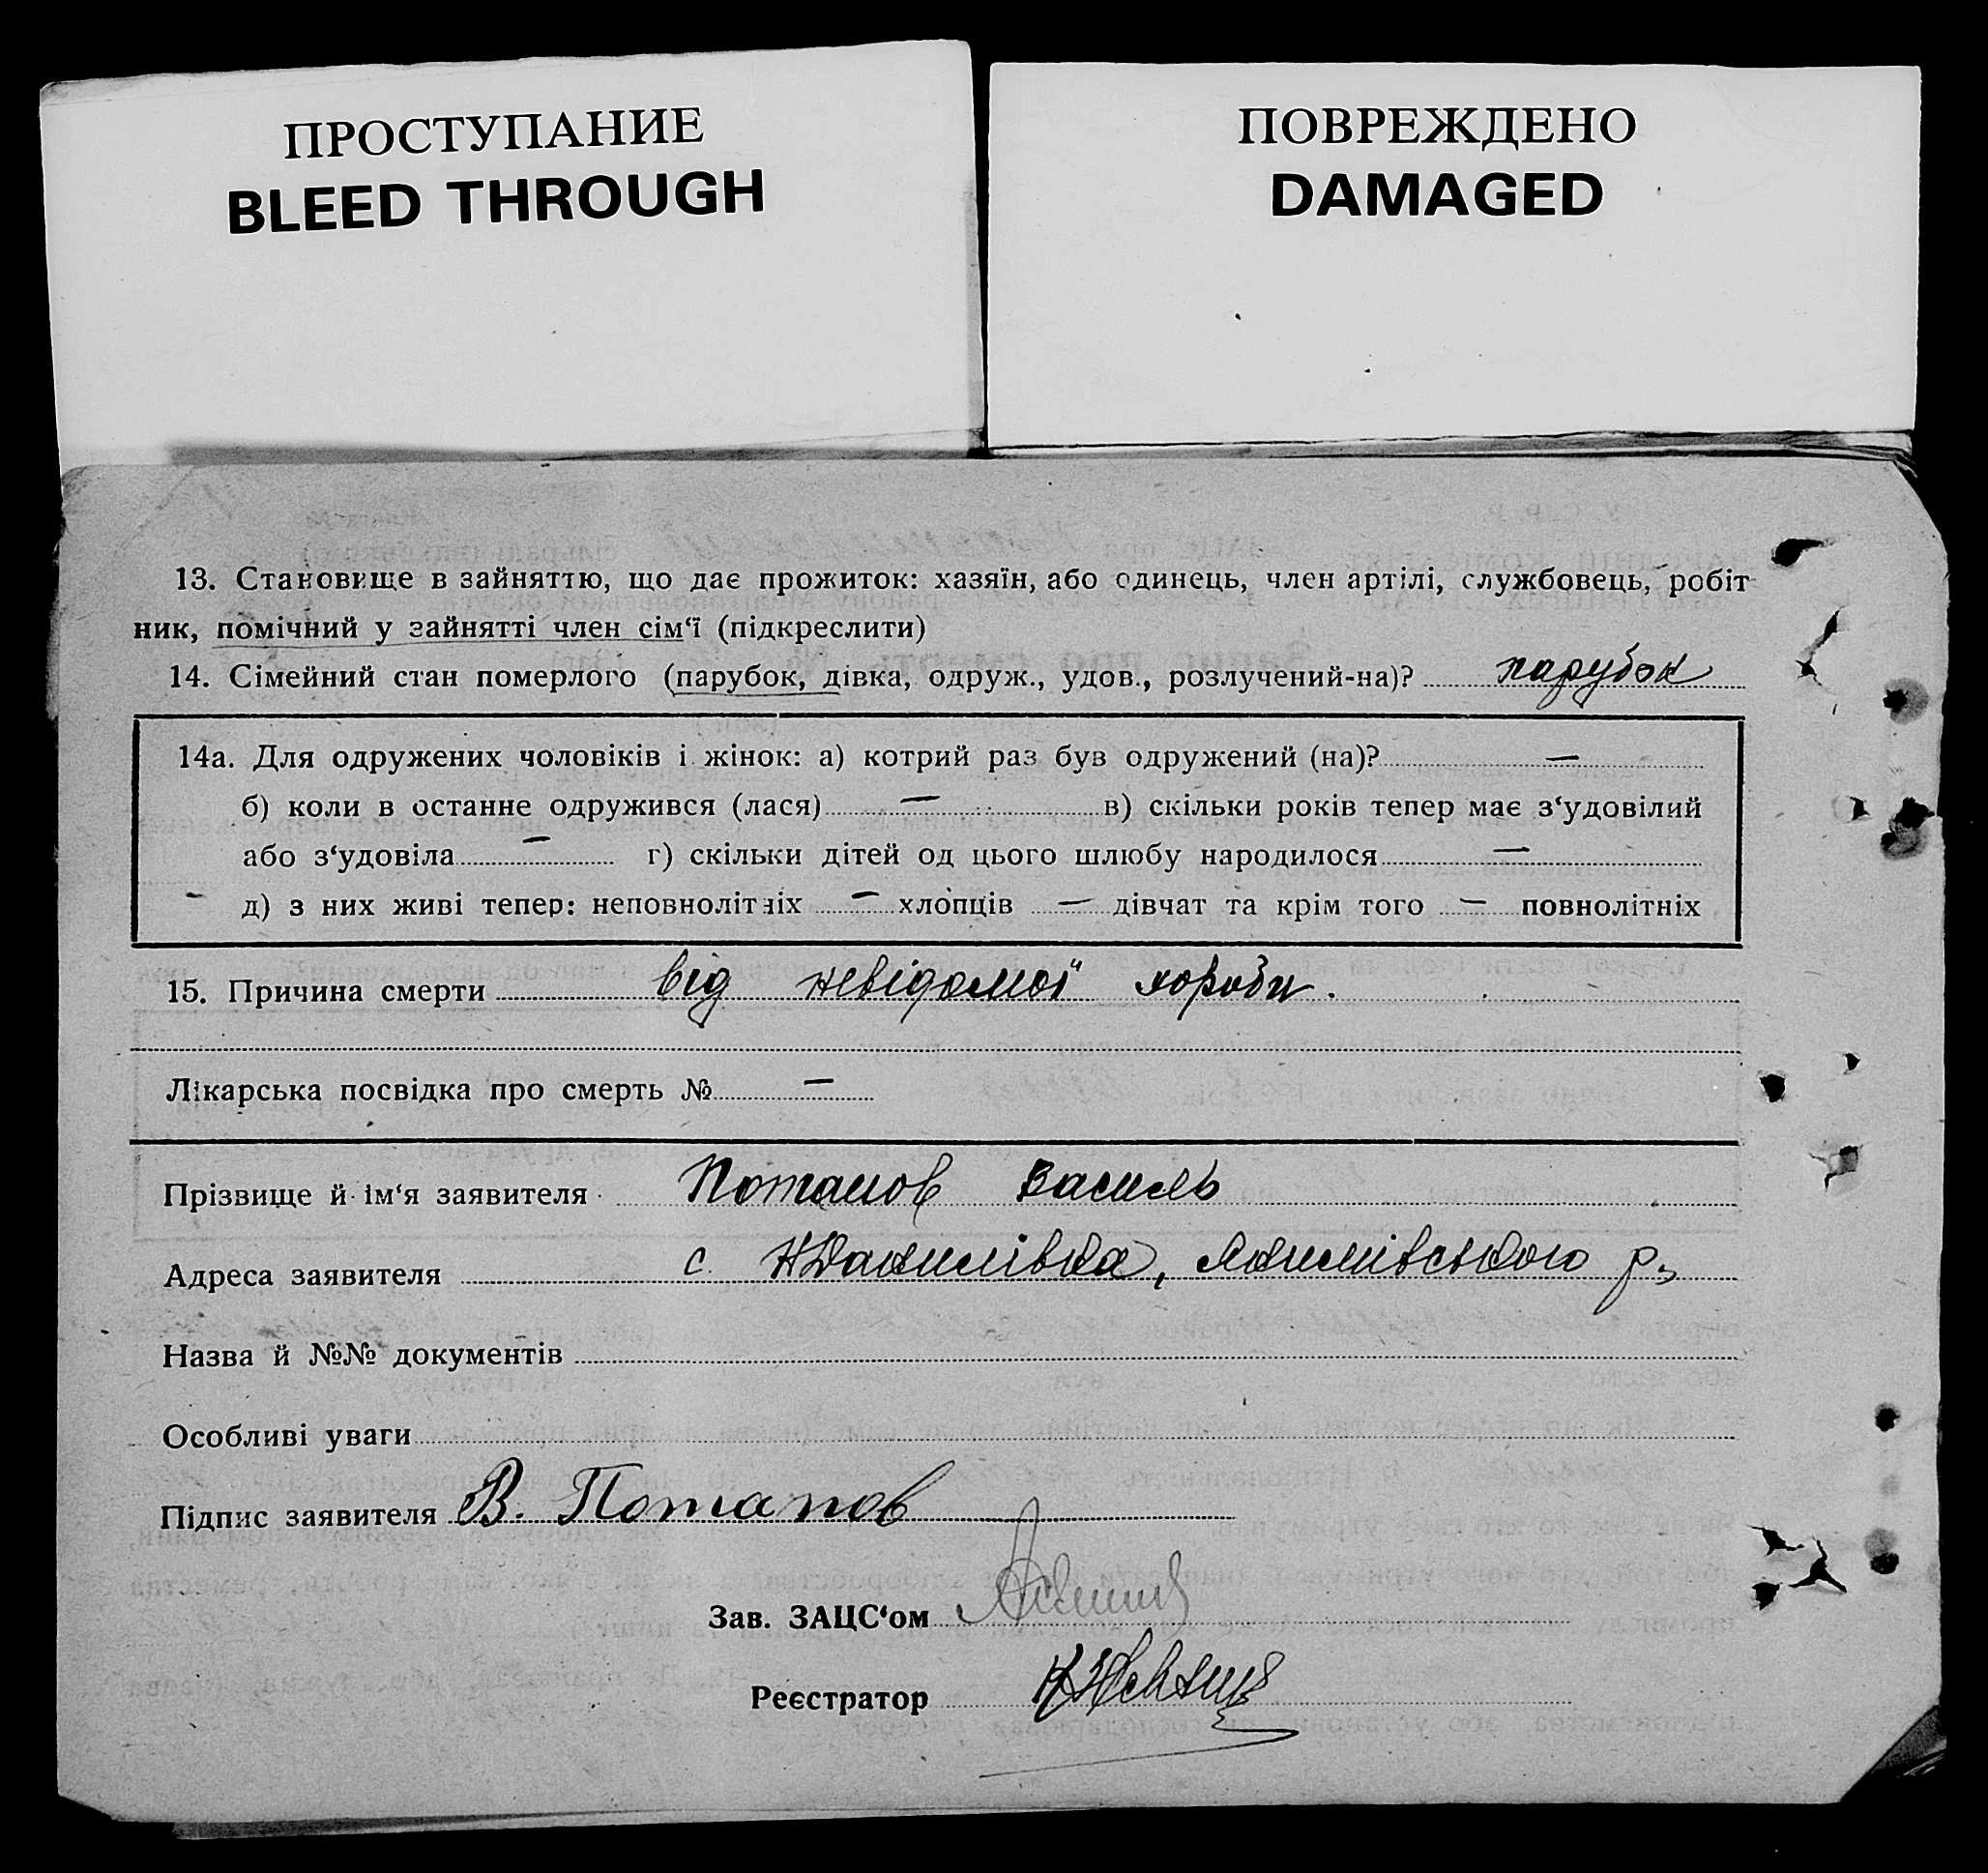 ПРОСТУПАНИЕ
BLEED THROUGH
ПОВРЕЖДЕНО
DAMAGED
13. Становище в зайняттю, що дає прожиток: хазяїн, або одинець, член артілі, службовець, робіт-
ник, помічний у зайнятті член сім‘ї (підкреслити)
14. Сімейний стан померлого (парубок, дівка, одруж., удов., розлучений-на)? парубок
14а. Для одружених чоловіків і жінок: а) котрий раз був одружений (на)? —
б) коли в останне одружився (лася) — в) скільки років тепер має з‘удовілий
або з‘удовіла — г) скільки дітей од цього шлюбу народилося —
д) з них живі тепер: неповнолітніх — хлопців — дівчат та крім того — повнолітніх
15. Причина смерти від невідомої хороби.
Лікарська посвідка про смерть № —
Прізвище й ім‘я заявителя Потапов Василь
Адреса заявителя с. НДанилівка, Якимівського р.,
Назва й №№ документів
Особливі уваги
Підпис заявителя В. Потапов
Зав. ЗАЦС‘ом
Реєстратор